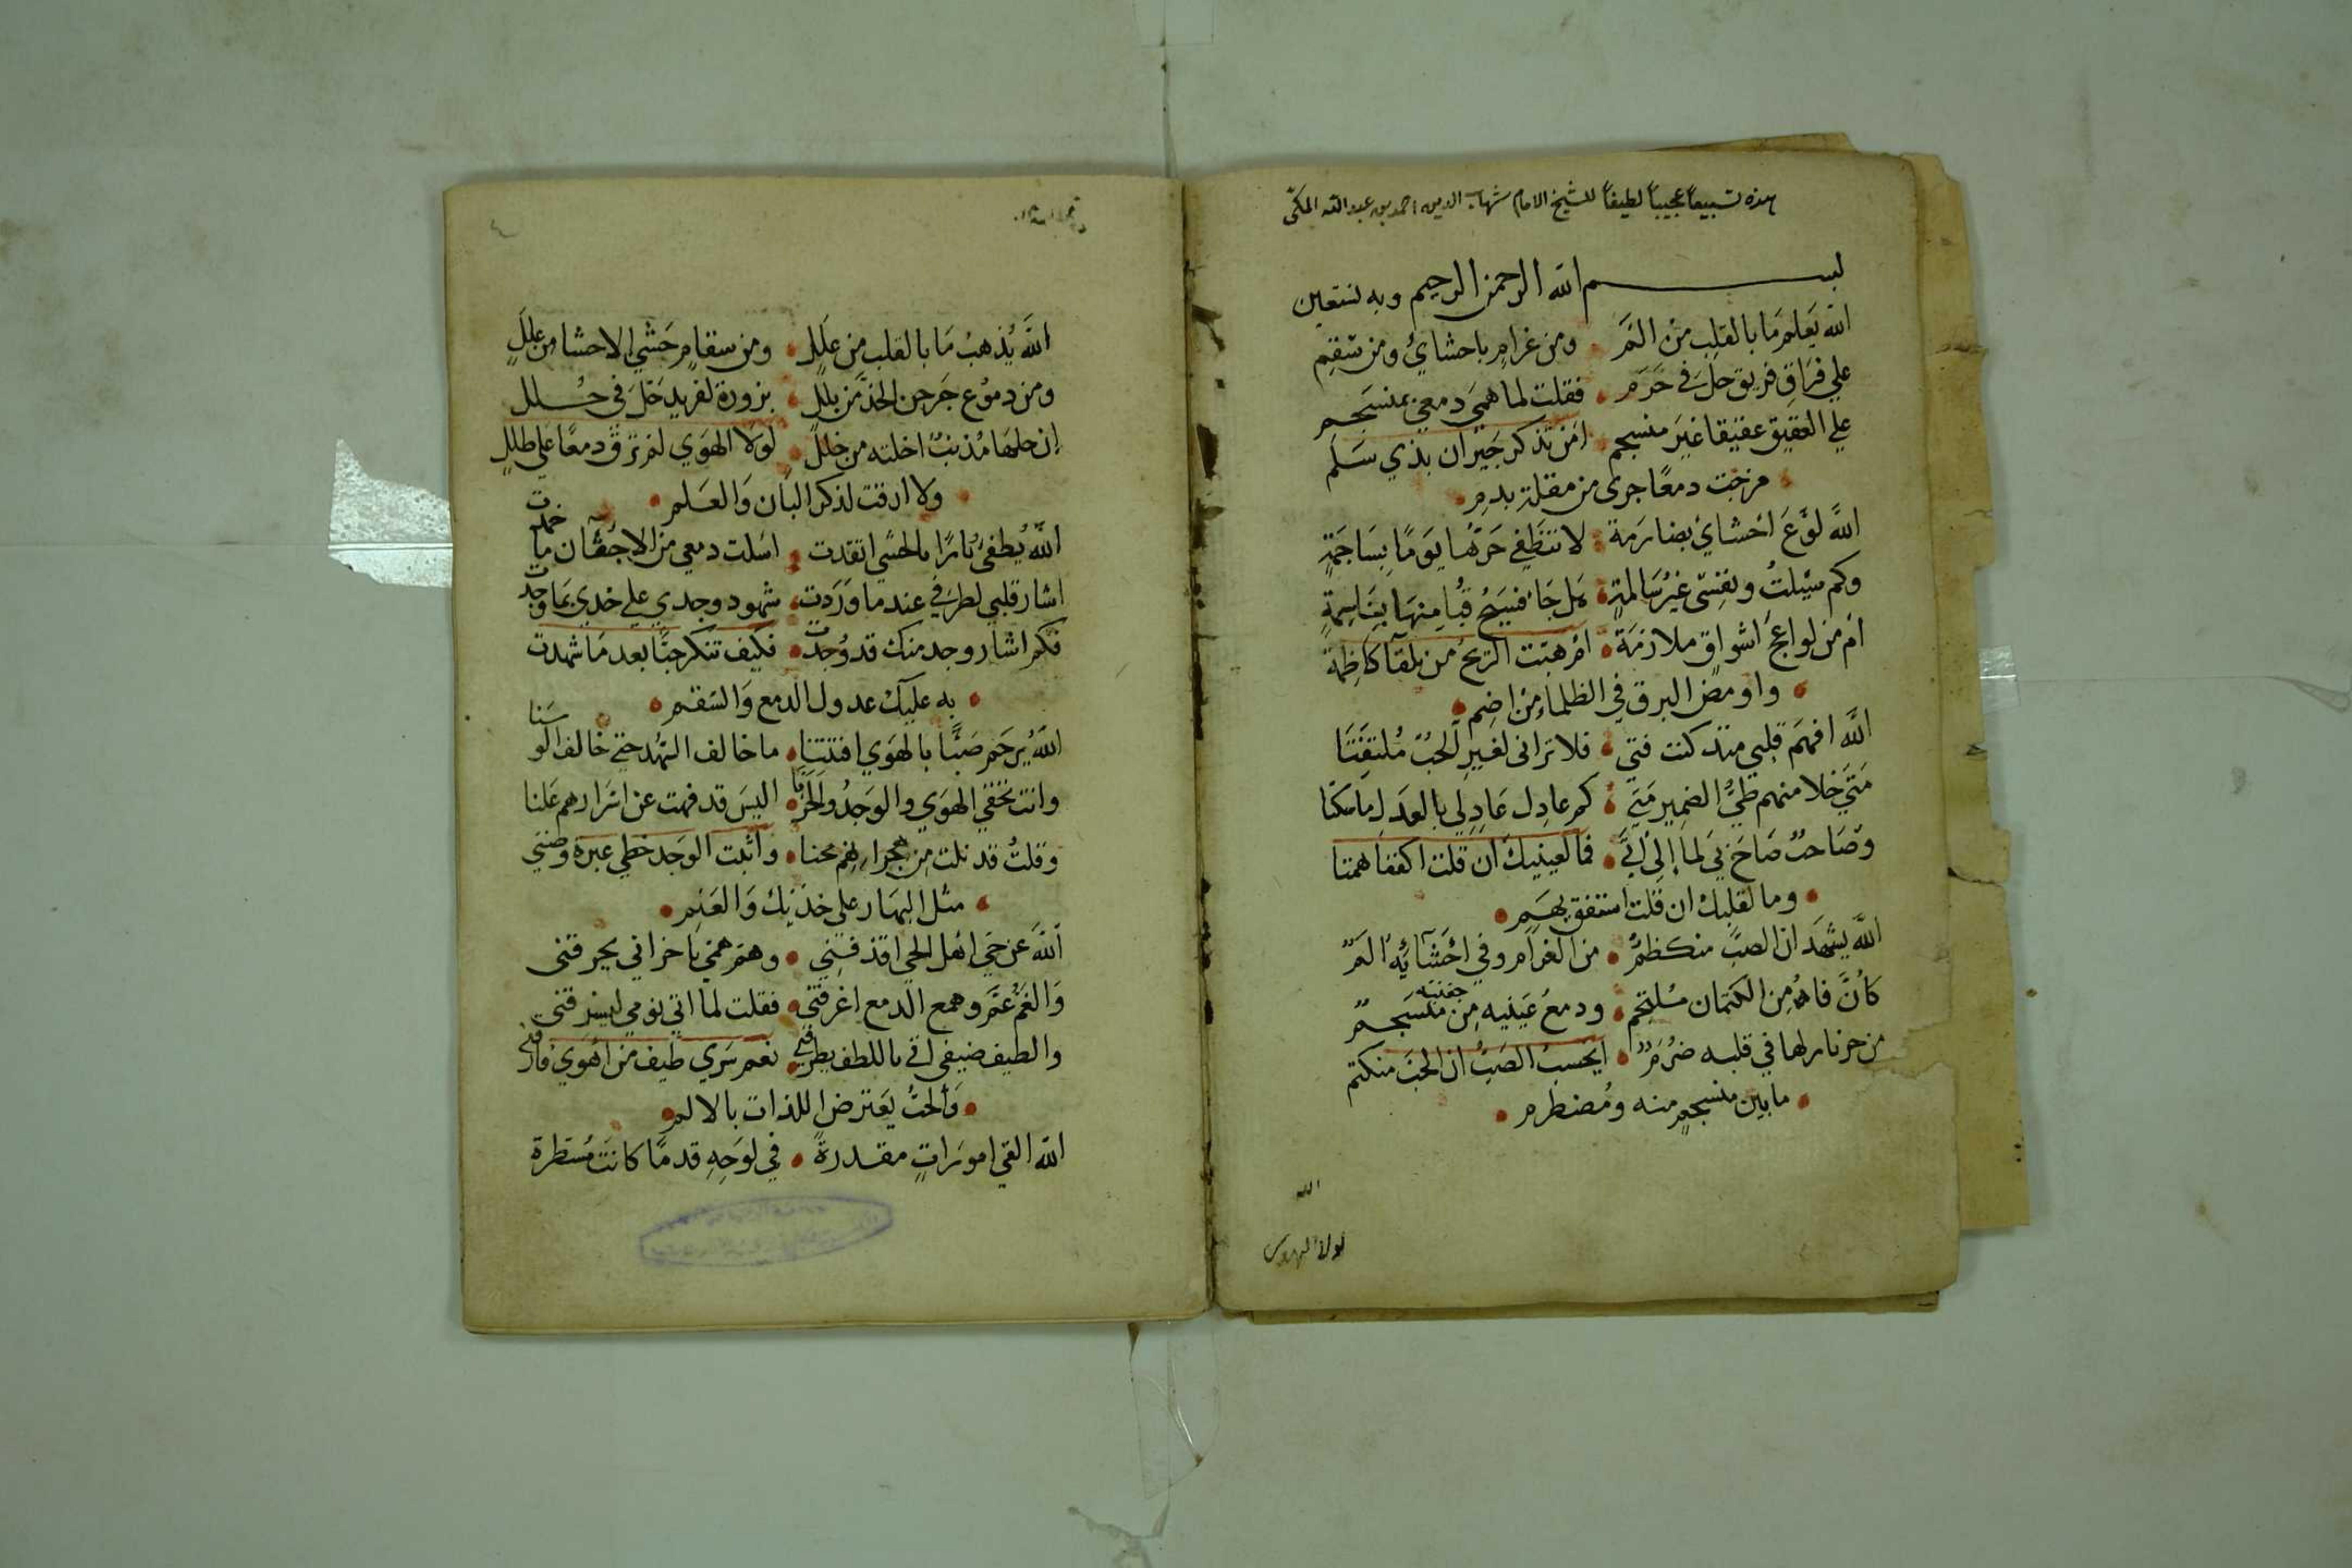 هذه تسبيعاً عجيباً لطيفاً للشيخ الامام شهاب الدين احمد بن عبد الله المكي
بسم الله الرحمن الرحيم وبه نستعين
الله يَعلم مَا بالقلب مِنْ المَ • ومن غرامٍ باحشايْ ومن سَقمِ
علي فِرَاقِ فريق حلَّ في حَرَم • فقلت لما هَمي دمعي بمنسَجم
علي العَقيق عقيقا غيرَ منسجم • امن تذكر جَيران بذي سَلَم
• مزجت دمعًا جرى من مقلة بدمِ •
اللهَ لوَّعَ احْشايْ بضارمَة • لا تنطَفِي حَرّهُا يَومًا بِسَاجمَةٍ
وكم سَيلتُ ونفسِى غيرُ سَالمةٍ • هَل جَا فسيحُ مِنهَا ببَاسِمةٍ
امْ من لواعجَ اشواقٍ ملازمَة • امْ هبّت الرّيحُ من تلقآ كاظِمة
• واومضَ البرق في الظلماءِ مِنْ اضِم •
اللهَ افهمَ قلبي مذ كنت فتي • فلا تراني لغَيرِ الحبّ مُلتفتًا
مَتَي خلا منهم طيُّ الضمِير مَتي • كم عادِل عَادِلي بالعدَلِ ما سكتا
وصَاحبٌ صَاحَ بي لما إليْ اتَي • فما لعينيك ان قلت اكففا همتا
• وما لقلبك ان قلت استفق يهَمِ •
اللهَ يشهَد ان الصبّ منكظمٌ • من الغرام وفي احْشَآئِهِ المٌ
كأنَّ فاهُ مِن الكتمان مُلتجم • ودمعُ عَينيه مِن جفنيه منسَجمٌ
من حر نار لها في قلبه ضرَمٌ • ايحْسبُ الصَبُّ ان الحبّ منكتم
• ما بين منسجمٍ منه ومُضطرم •
الله
لولا الهوى
اللهَ يُذهبُ مَا بالقلب من عَلَلِ • ومن سقامٍ حَشي الاحشا مِن عِلَلٍ
ومن دمُوع جَرحن الخدّ من بللٍ • بزورة لفريد حَلّ في حُلل
إن حلمَها مُذنبٌ اخلته من خلل • لولَا الهَوي لم ترق دمعًا على طللٍ
• ولا ارقت لذكر البَان وَالعَلم •
اللهَ يُطفئُ نارًا بالحشي اتقدت • اسَلت دمعي من الاجْفان ما خمدت
اشار قلبي لطرفي عندما وَرَدت • شهود وجدي علي خدي بمَا وجدت
فكم اشار وجد منك قد وُجدت • فكيف تنكر حبًّا بعد مَا شهدت
• به عليك عدول الدمع وَالسّقم •
اللهَ يُرحَم صَبًّا بالهَوي افتتنا • ما خالف السّهد حتي خالف الوسَنا
وانت تخفي الهوَي والوَجدُ والحَزَنا • اليسَ قد فهت عن اسْرارهم عَلنا
وقلتُ قد نلت مِن هجرانهم محنا • واثبت الوَجد خطي عبرة وضني
• مثل البهَار على خدّيك وَالعَنم •
اللهَ عن حي اهْل الحي اقذفني • وهمّ همي باحزاني يحرقني
وَالغمُّ عمّ وهمع الدمع اغرقني • فقلت لما اتي نومي ليسرقني
والطيف ضيفي اتي باللطف يطرقني • نعم سَري طيف من اهْوَي فارقني
• وَالحبُّ يعَترض اللذات بالالم •
الله القي امورَاتٍ مقدرةً • في لوَحِهِ قدمًا كانتَ مُسَطرة